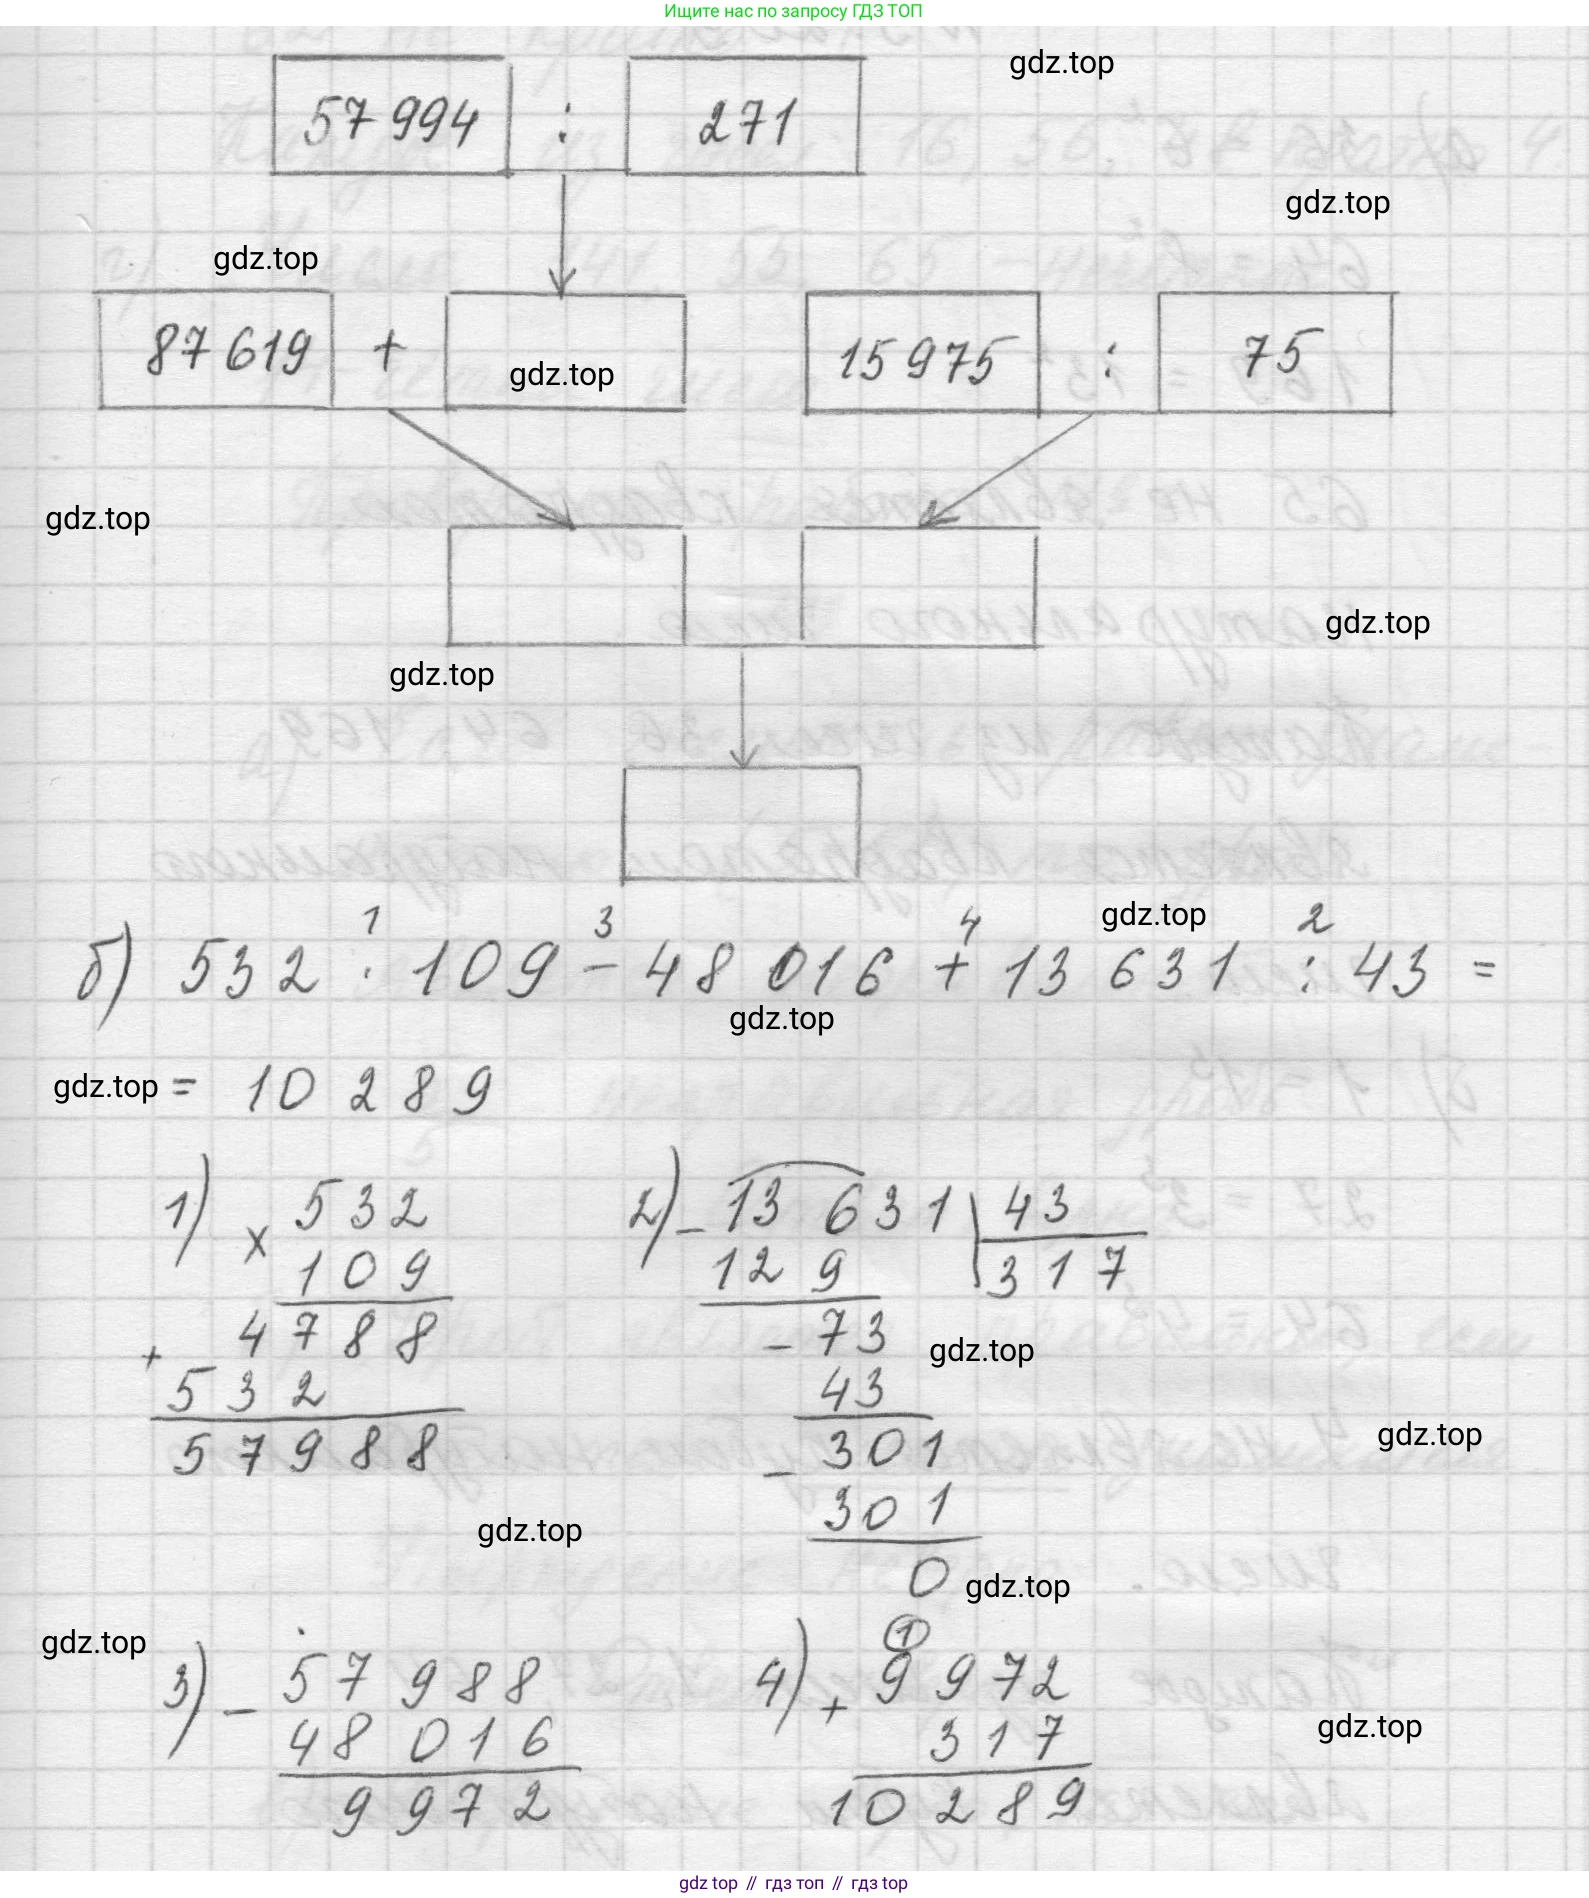 Ищите нас по запросу ГДЗ ТОП
gdz.top
57 994 : 271
gdz.top
gdz.top
87 619 + gdz.top 15 975 : 75
gdz.top
gdz.top
gdz.top
1 3 4 gdz.top 2
б) 532 · 109 - 48 016 + 13 631 : 43 =
gdz.top
gdz.top = 10 289
1) × 532 2) - 13 631 | 43
109 129 317
4788 - 73 gdz.top
+ 532 43
57988 - 301 gdz.top
gdz.top 301
0 gdz.top
gdz.top 1
3) - 57 988 4) + 9972
48 016 317 gdz.top
9972 10289
gdz top // гдз топ // гдз top